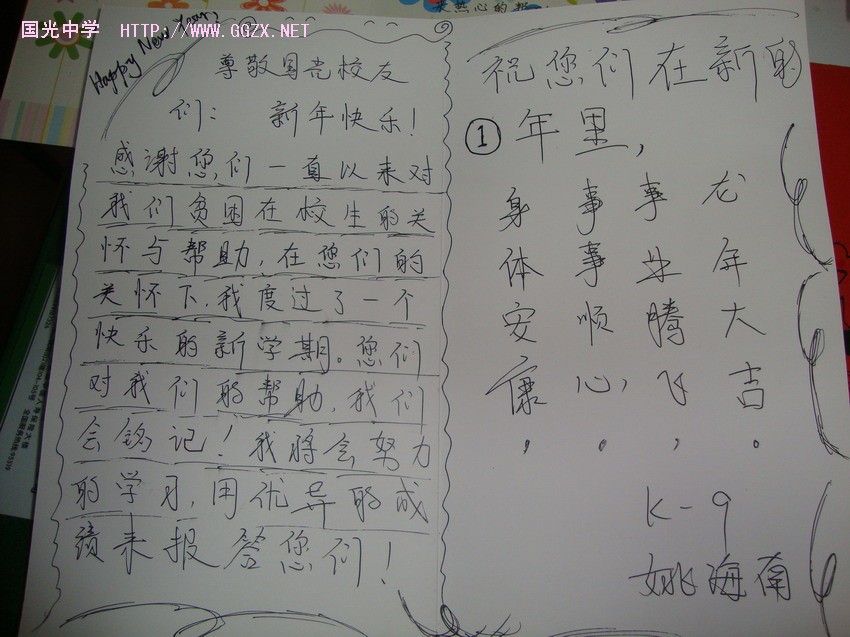 国光中学 HTTP://WWW.GGZX.NET
Happy New Year
尊敬国光校友
们: 新年快乐!
感谢您们一直以来对
我们贫困在校生的关
怀与帮助,在您们的
关怀下,我度过了一个
快乐的新学期。您们
对我们的帮助,我们
会铭记!我将会努力
的学习,用优异的成
绩来报答您们!
祝您们在新的
① 年里,
身体安康,
事事顺心,
事业腾飞,
龙年大吉。
K-9
姚海南